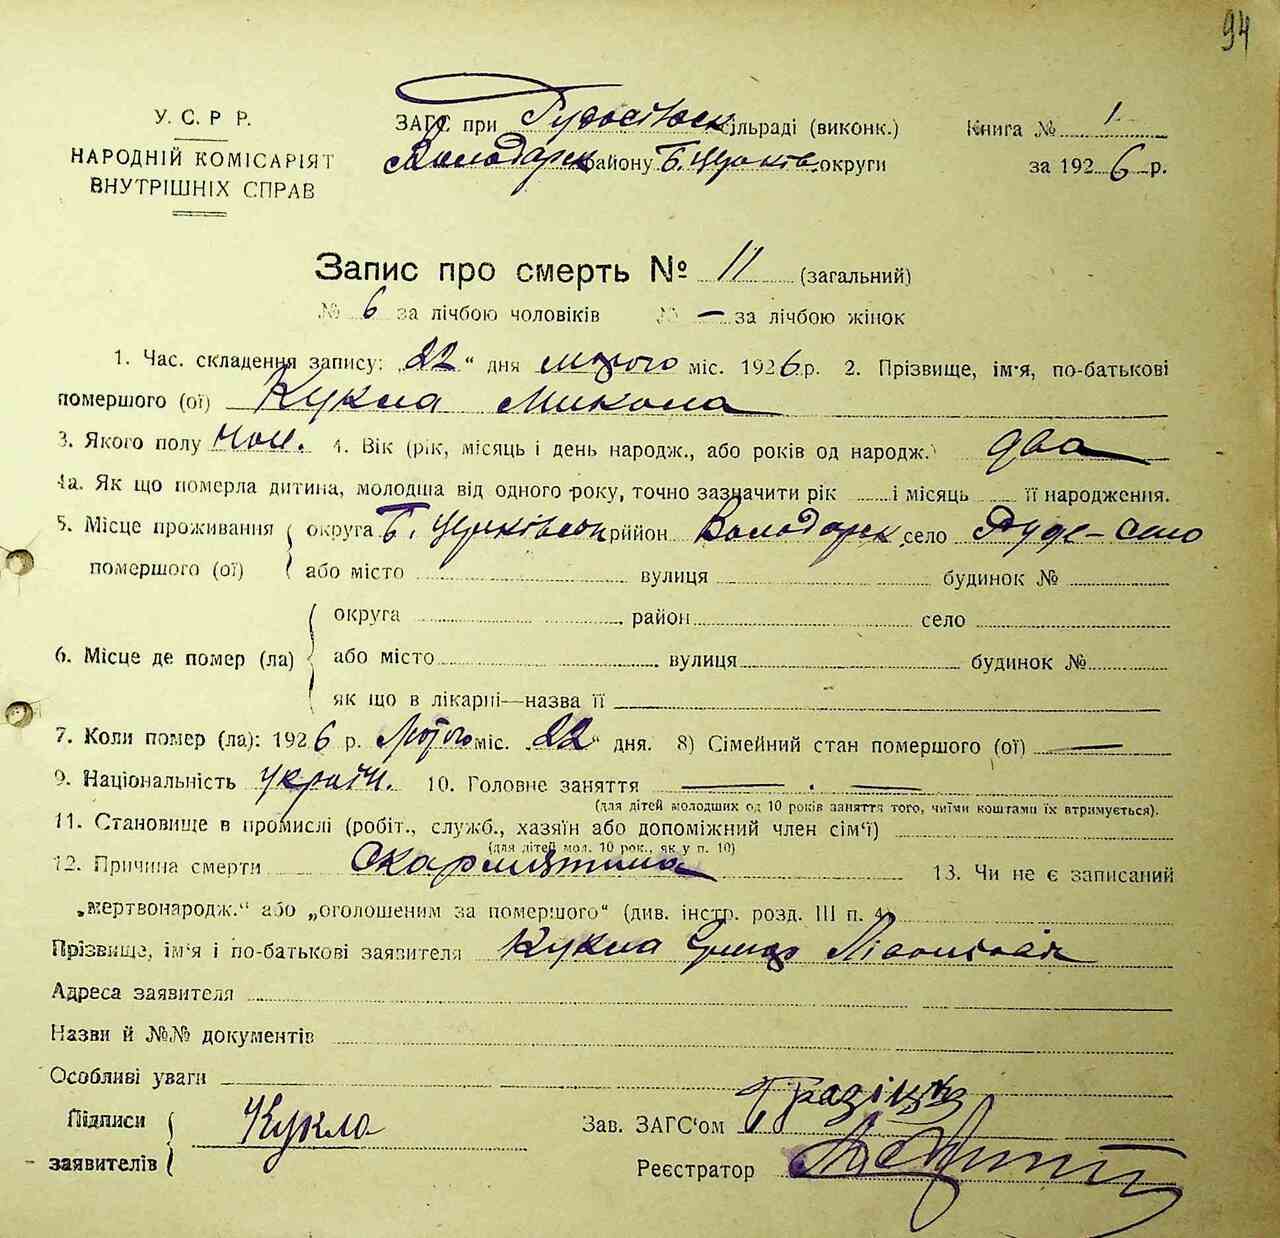 94
У. С. Р Р.
НАРОДНІЙ КОМІСАРІЯТ
ВНУТРІШНІХ СПРАВ
ЗАГС при Рудосільськ сільраді (виконк.)
Володарск району Б. Церків. округи
Книга № 1
за 1926 р.
Запис про смерть № 11 (загальний)
№ 6 за лічбою чоловіків № — за лічбою жінок
1. Час. складення запису: „22“ дня лютого міс. 1926 р. 2. Прізвище, ім'я, по-батькові
помершого (ої) Кукла Микола
3. Якого полу чол. 4. Вік (рік, місяць і день народж., або років од народж.) два
4а. Як що померла дитина, молодша від одного року, точно зазначити рік і місяць її народження.
5. Місце проживання помершого (ої) округа Б. Церківськ рийон Володарск село Руде-Село
або місто вулиця будинок №
6. Місце де помер (ла) округа район село
або місто вулиця будинок №
як що в лікарні—назва її
7. Коли помер (ла): 1926 р. Лютого міс. „22“ дня. 8) Сімейний стан помершого (ої) —
9. Національність україн. 10. Головне заняття — . —
(для дітей молодших од 10 років заняття того, чиїми коштами їх втримується).
11. Становище в промислі (робіт., служб., хазяїн або допоміжний член сім'ї)
(для дітей мол. 10 рок., як у п. 10)
12. Причина смерти Скарлятина 13. Чи не є записаний
„мертвонародж.“ або „оголошеним за помершого“ (див. інстр. розд. III п. 4)
Прізвище, ім'я і по-батькові заявителя Кукла
Адреса заявителя
Назви й №№ документів
Особливі уваги
Підписи заявителів Кукла
Зав. ЗАГС'ом
Реєстратор